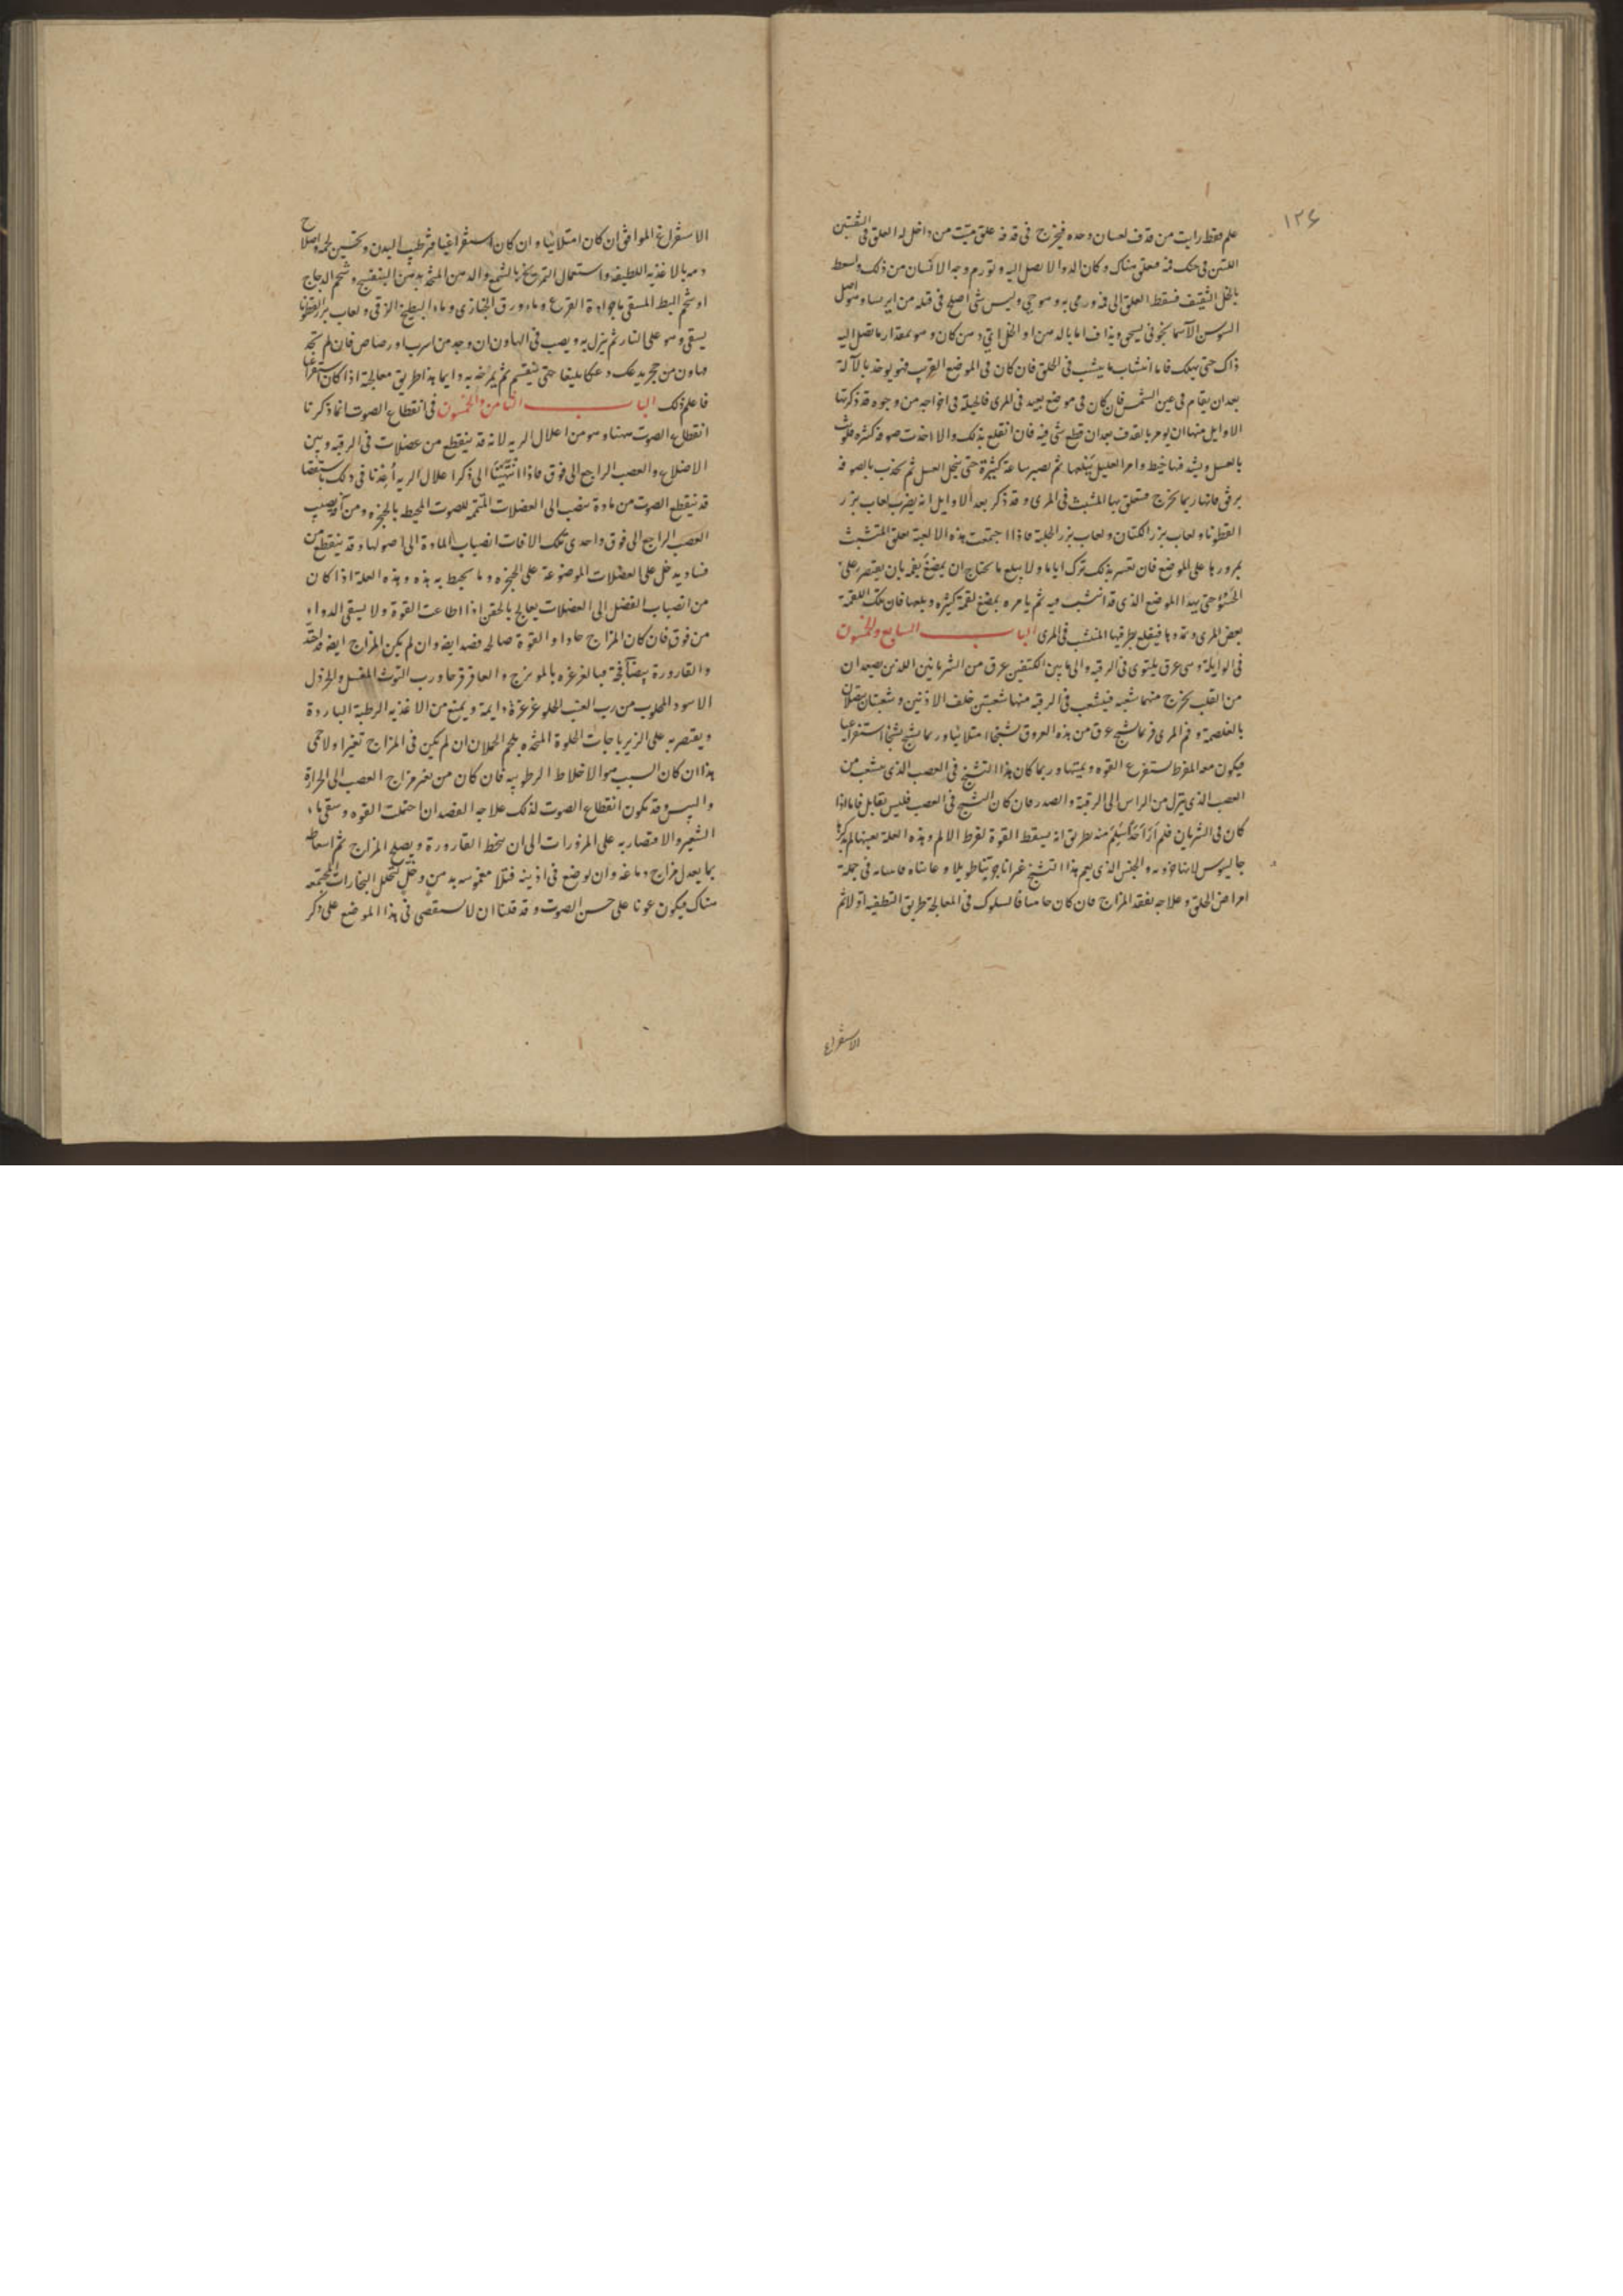 ١٢۶
علم فقط رايت من قذف لعسان وحده فيخرج فى قذفه علق ميتت من داخل له العلق فى الثقبتين
اللتين فى حنك فمه معلق هناك وكان الدوا لا يصل اليه وتورم وجه الانسان من ذلك ولسعط
بالخل الثقيف فسقط العلق الى فمه ورمى به وهو حى وليس شى اصلح فى قتله من ايرسا وهو اصل
السوسن الآسمانجونى يسحق ويذاف اما بالدهن او الخل اى دهن كان وهو بمقدار ما تصل اليه
ذاك حتى يهلك فاما انشاب ما ينشب فى الحلق فان كان فى الموضع القريب فهو يوخذ بالآلة
بعد ان يقام فى عين الشمس فان كان فى موضع بعيد فى المرى فالحيلة فى اخواجه من وجوه قد ذكرتها
الاوايل منها ان يومر بالقذف بعد ان قطع شى فيه فان انقلع بذلك والا اخذت صوفه كثيره فلوث
بالعسل ويشد فيها خيط وامر العليل يبلعها ثم تصبر ساعة كثيرة حتى ينحل العسل ثم تجذب بالصوفه
برفق فانها ربما تخرج متعلق بها المنشب فى المرى وقد ذكر بعد الاوايل انه يضرب لعاب بزر
القطونا ولعاب بزر الكتان ولعاب بزر الحلبة فاذا اجتمعت هذه الالعبة تعلق المتشبث
بمرورها على الموضع فان تعسر بذلك ترك اياما ولا يبلع ما يحتاج ان يمضغ بفمه بان يقتصر على
الحسو حتى يهدا الموضع الذى قد انشب فيه ثم يامره بمضغ لقمة كثيره وبلعها فان تلك اللقمة
بعض المرى وتمددها فيقلع بطرفها المنشب فى المرى الباب السابع والخمسون
فى الوابلة وهى عرق يلتوى فى الرقبه والى ما بين الكتفين عرق من الشريانين اللذين يصعدان
من القلب يخرج منهما شعبه فيشعب فى الرقبه منها شعبتين خلف الاذنين وشعبتان يتصلان
بالغلصمة وفم المرى فربما تشنج عرق من هذه العروق تشنجا امتلائيا وربما تشنج تشنجا استفراغيا
فيكون معه المفرط يستفرغ القوه ويميتها وربما كان هذا التشنج فى العصب الذى يتشعب من
العصب الذى ينزل من الراس الى الرقبة والصدر فان كان التشنج فى العصب فليس بقاتل فاما اذا
كان فى الشريان فلم ار احدا يسلم منه بطريق انه يسقط القوة لفرط الالم وهذه العلة بعينها لم يذكرها
جالينوس
امراض الحلق وعلاجه تفقد المزاج فان كان حاميا فالسلوك فى المعالجة طريق التطفيه اولا ثم
الاستفراغ
الاستفراغ الموافق ان كان امتلائيا وان كان استفراغيا فترطيب البدن وتحسين لحمه واصلاح
دمه بالاغذيه اللطيفه واستعمال التمريخ بالشمع والدهن المتخذ بدهن البنفسج وشحم الدجاج
او شحم البط المسقى ماء جرادة القرع وماء ورق الخبازى وماء البطيخ الزقى ولعاب بزر القطونا
يسقى وهو على النار ثم ينزل به ويصب فى الهاون ان وجد من اسرب او رصاص فان لم تجد
هاون من حجر يدعك دعكا بليغا حتى ينفسم ثم يمرخه به دايما هذا طريق معالجة اذا كان استفراغيا
فاعلم ذلك الباب الثامن والخمسون فى انقطاع الصوت انما ذكرنا
انقطاع الصوت ههنا وهو من اعلال الريه لانه قد ينقطع من عضلات فى الرقبه وبين
الاضلاع والعصب الراجع الى فوق فاذا انتهينا الى ذكر اعلال الريه اخذنا فى ذلك باستقصا
قد ينقطع الصوت من مادة تنصب الى العضلات المتممه للصوت المحيط بالحنجره ومن آفه تصيب
العصب الراجع الى فوق واحدى تلك الافات انصباب المادة الى اصولها وقد ينقطع من
فساد يدخل على العضلات الموضوعة على الحنجره وما يحيط به هذه وهذه العلة اذا كان
من انصباب الفضل الى العضلات يعالج بالحقن اذا اطاعت القوة ولا يسقى الدواء
من فوق فان كان المزاج حادا والقوة صالحه فصد ايضه وان لم يكن المزاج ايضه قد احتد
والقارورة بيضا فجة فبالغرغره بالمويزج والعاقرقرحا ورب التوث المغسل والخردل
الاسود المحلوب من رب العنب الحلو غرغرة دايمة ويمنع من الاغذيه الرطبة الباردة
ويقتصر به على الزيرباجات الحلوة المتخذه بلحم الحملان ان لم يكن فى المزاج تغيرا ولا حمى
هذا ان كان السبب هو الاخلاط الرطوبيه فان كان من تغير مزاج العصب الى الحرارة
واليبس وقد يكون انقطاع الصوت لذلك علاجه الفصد ان احتملت القوه وسقى ماء
الشعير والاقتصار به على المزورات الى ان تنحط القارورة ويصلح المزاج ثم اسعاطه
بما يعدل مزاج دماغه وان يوضع فى اذنيه فتلا مغموسه بدهن وخل لتحلل البخارات المجتمعه
هناك فيكون عونا على حسن الصوت وقد قلنا ان لا نستقصى فى هذا الموضع على ذكر